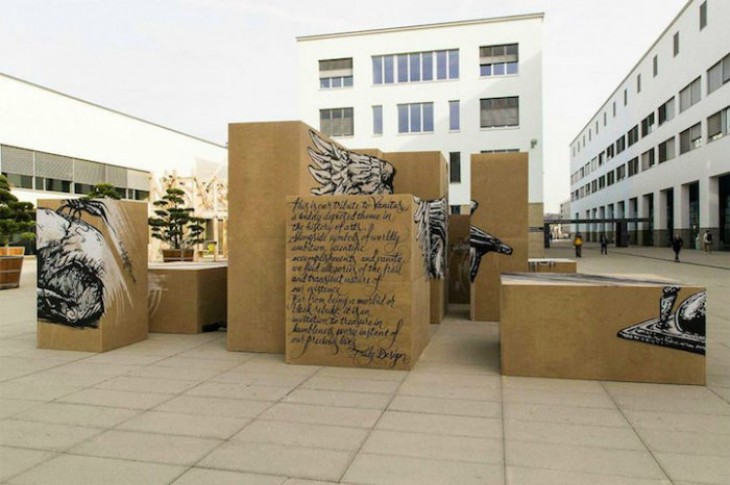 This is our tribute to Vanitas,
a widely depicted theme in
the history of arts.
Alongside symbols of worldly
ambition, scientific
accomplishments and vanity,
we find allegories of the frail
and transient nature of
our existence.
Far from being a morbid or
bleak rebuke, it is an
invitation to treasure in
humbleness every instant of
our precious live.
Truly Design